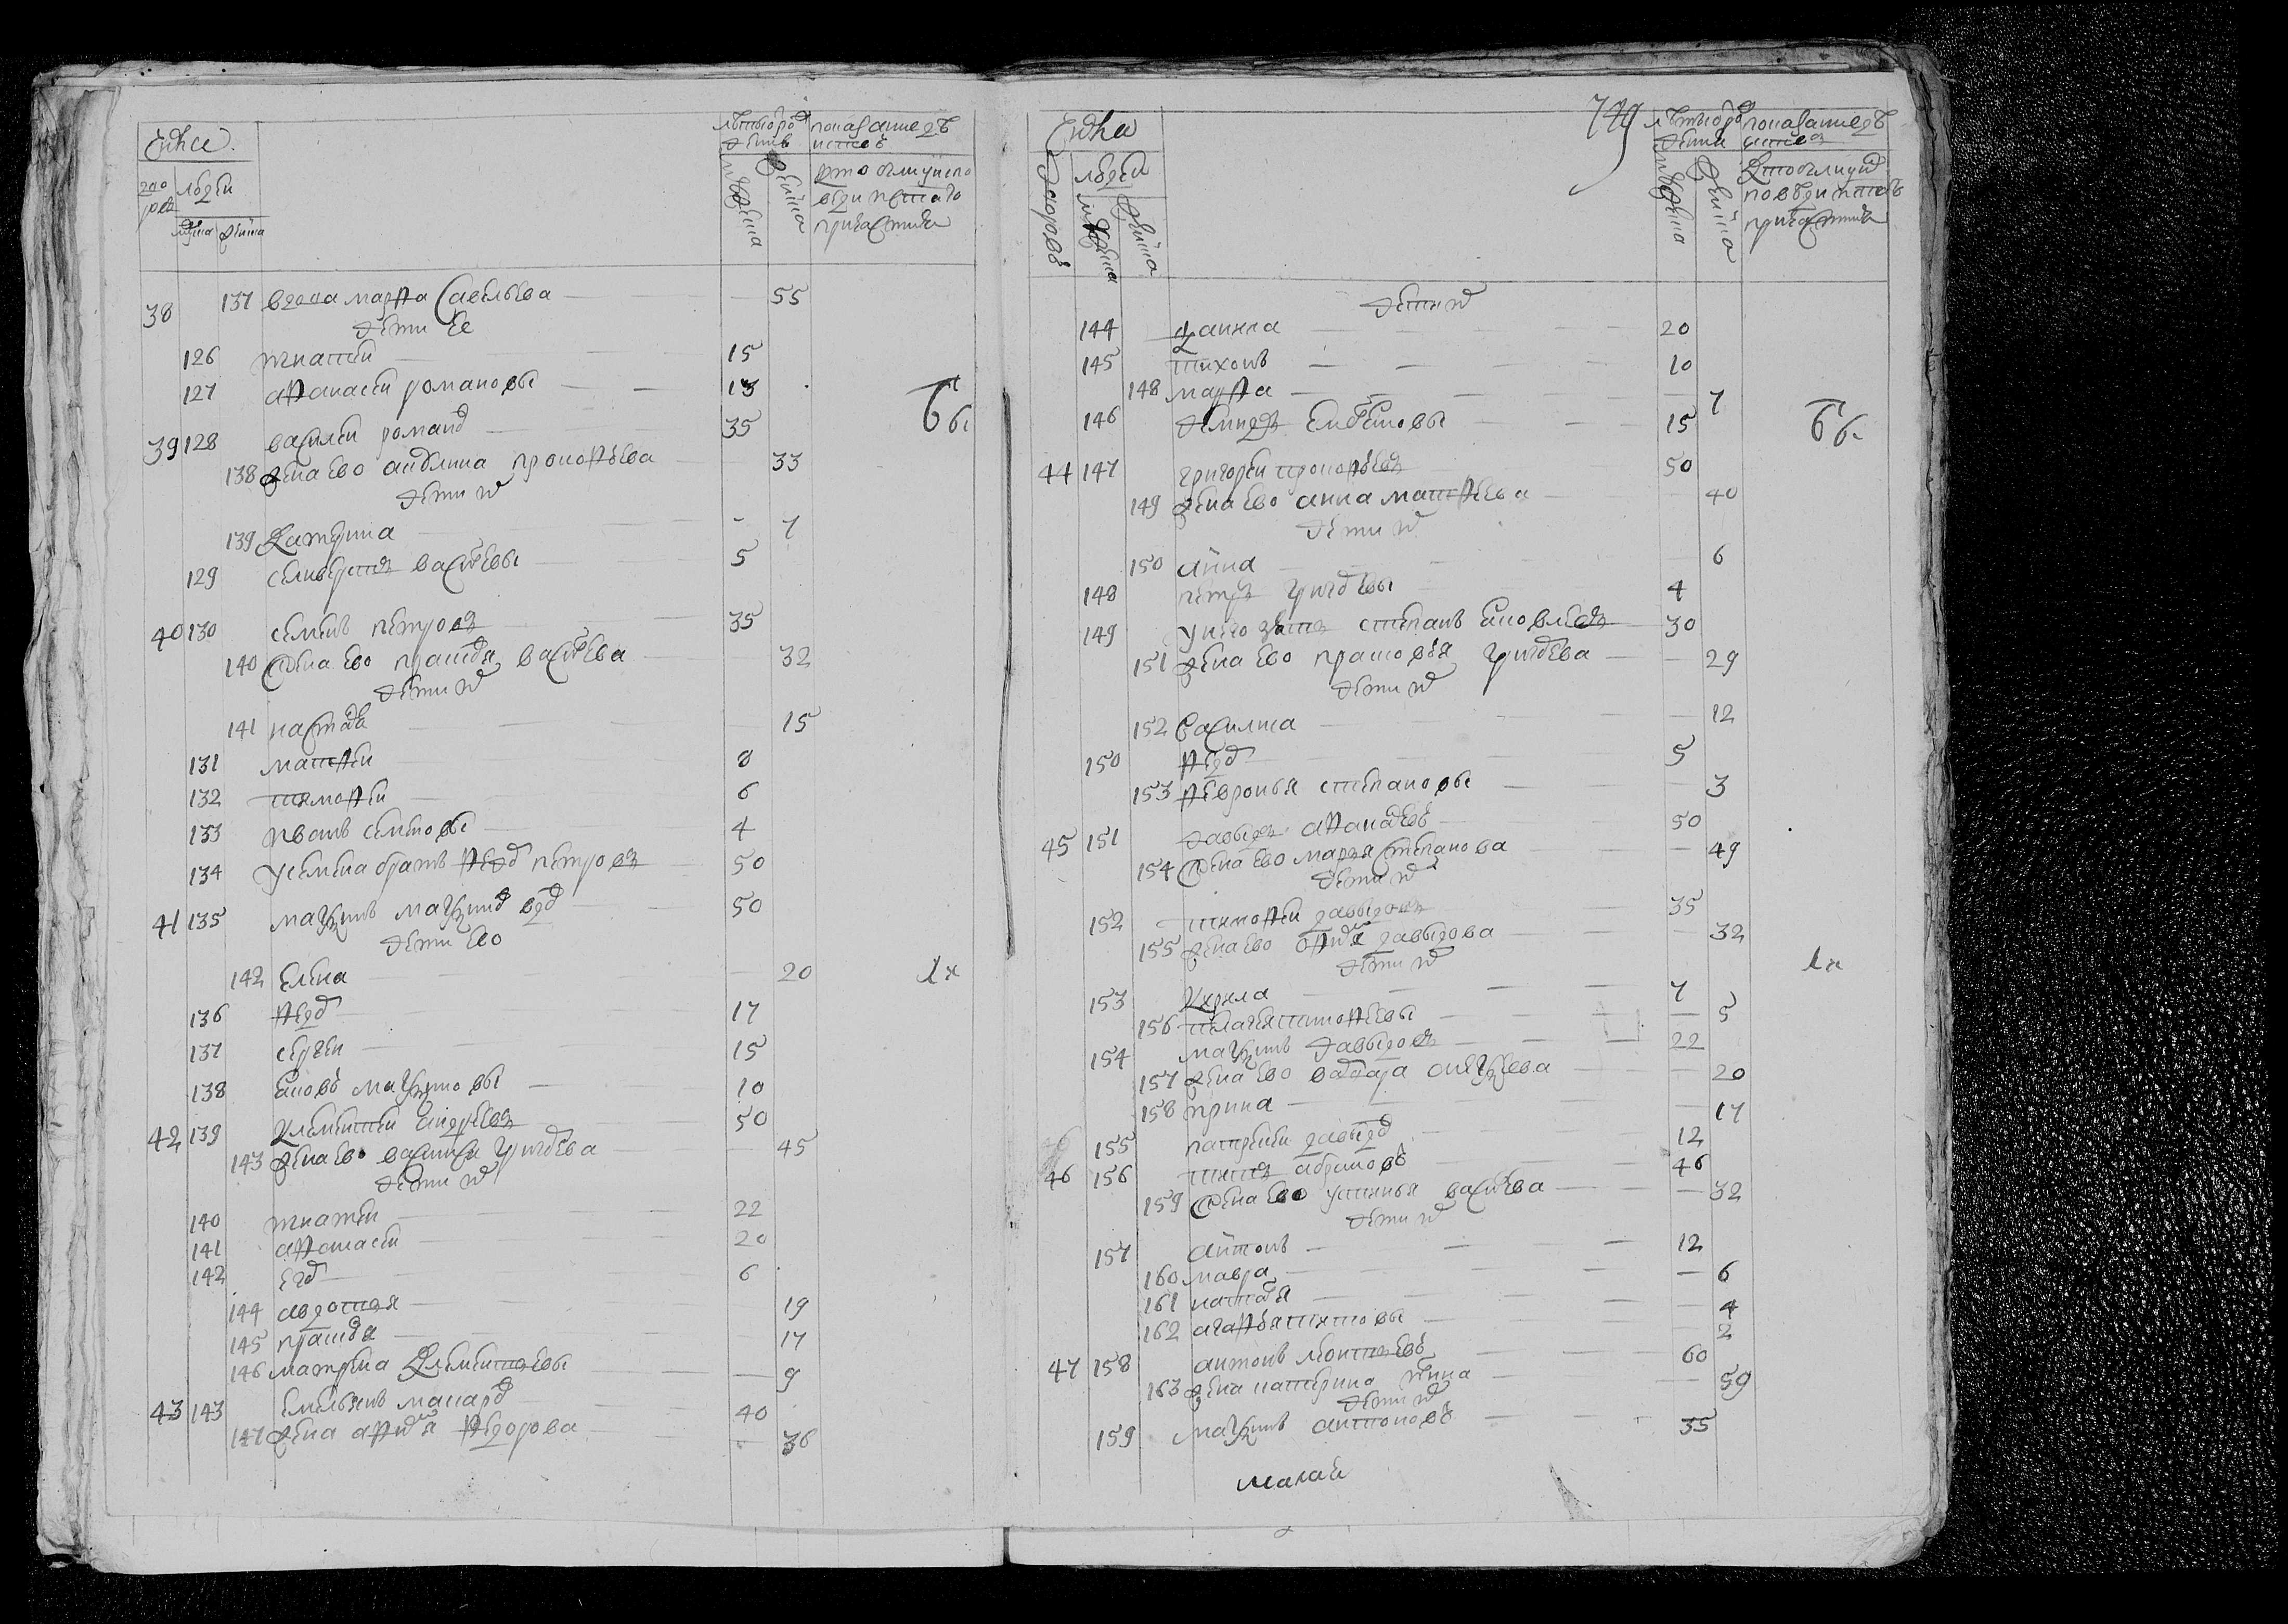 числа
дворо
людей
мужеска женска
лѣта от рож
дения
мужеска
женска
показание
кто был у испо
веди и святаго
причастия
38 137 вдова марфа савельева 55
дети ее
126 игнатей 15
127 афанасей романовы 13
Бы
39 128 василей романо 35
138 жена ево акулина прокофьева 33
дети их
139 катерина 7
129 селиверстъ васильевы 5
40 130 семенъ петровъ 35
140 жена ево прасковя васильева 32
дети их
141 настася 15
131 матфей 8
132 тимофей 6
133 иванъ семеновы 4
134 у семена братъ федо петровъ 50
41 135 максимъ максимо вдо 50
дети ево
142 елена 20
ли
136 федо 17
137 сергей 15
138 яковъ максимовы 10
42 139 климентей андреевъ 50
143 жена ево василиса григорева 45
дети их
140 игнатей 22
141 афонасей 20
142 его 6
144 авдотья 19
145 прасковя 17
146 матрена климентьевы 9
43 143 емельянъ макаро 40
147 жена афимя федорова 36
749
числа
дворовъ
людей
мужеска
женска
лѣта от рож
дения
мужеска
женска
показание
кто был у
исповеди и святаго
причастия
дети их
144 данила 20
145 тихонъ 10
148 марфа 7
146 демидъ емельеновы 15
Бы
44 147 григорей прокофьевъ 50
149 жена ево анна матфеева 40
дети их
150 анна 6
148 петръ григоревы 4
149 у него зять степанъ яковлевъ 30
151 жена ево прасковья григорева 29
дети их
152 василиса 12
150 федо 5
153 февронья степановы 3
45 151 давыдъ афанасевъ 50
154 жена ево марья степанова 49
дети их
152 тимофей давыдовъ 35
155 жена ево афимя давыдова 32
дети их
ли
153 кирила 7
156 пелагея тимофеевы 5
154 максимъ давыдовъ 22
157 жена ево варвара алексеева 20
158 ирина 17
155 патрекей давыдо 12
46 156 титъ абрамовъ 46
159 жена ево устинья васильева 32
дети их
157 антонъ 12
160 мавра 6
161 наталя 4
162 агафья титовы 2
47 158 антонъ леонтьевъ 60
163 жена катерина 59
дети их
159 максимъ антоновъ 35